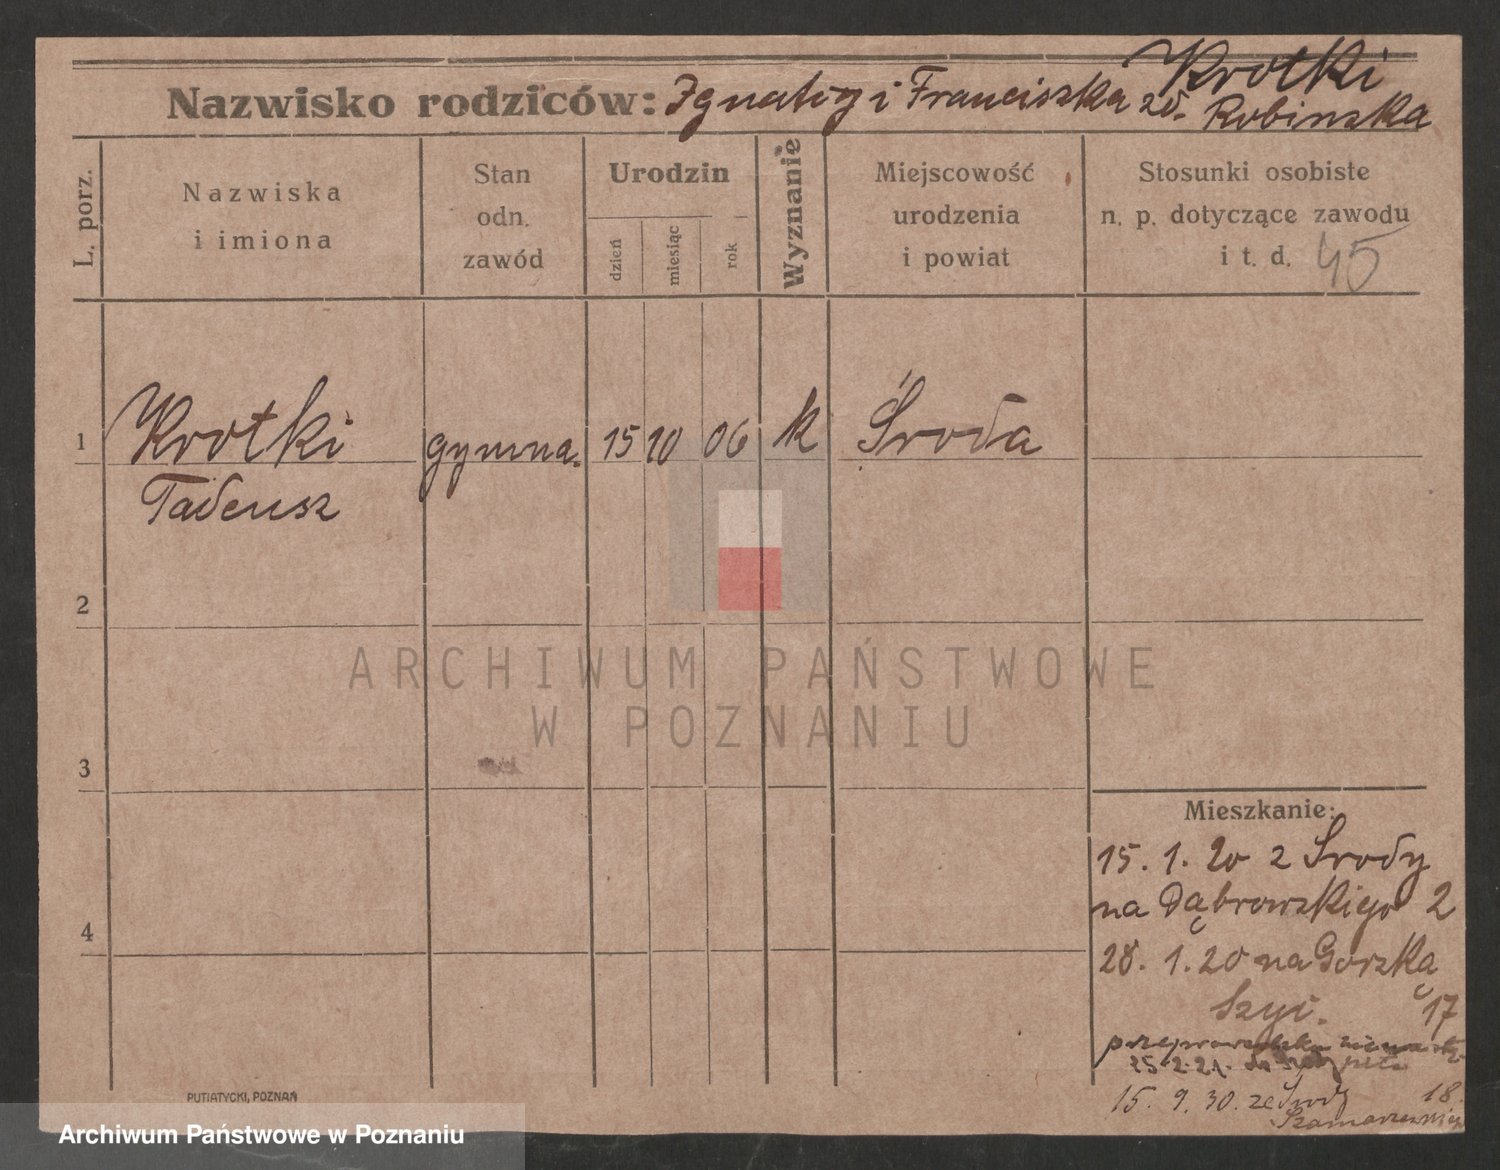 Krotki
Nazwisko rodziców: Ignatcy i Franciszka zd. Robinska
L. porz.
Nazwiska
i imiona
Stan
odn.
zawód
Urodzin
dzień
miesiąc
rok
Wyznanie
Miejscowość
urodzenia
i powiat
Stosunki osobiste
n. p. dotyczące zawodu
i t. d. 45
1 Krotki gymna. 15 10 06 k Środa
Tadeusz
2
ARCHIWUM PAŃSTWOWE
W POZNANIU
3
4
Mieszkanie:
15. 1. 20 z Środy
na Dąbrowskiego 2
28. 1. 20 na Gorzką
17
15. 9. 30. ze Środy 18.
PUTIATYCKI, POZNAŃ
Archiwum Państwowe w Poznaniu